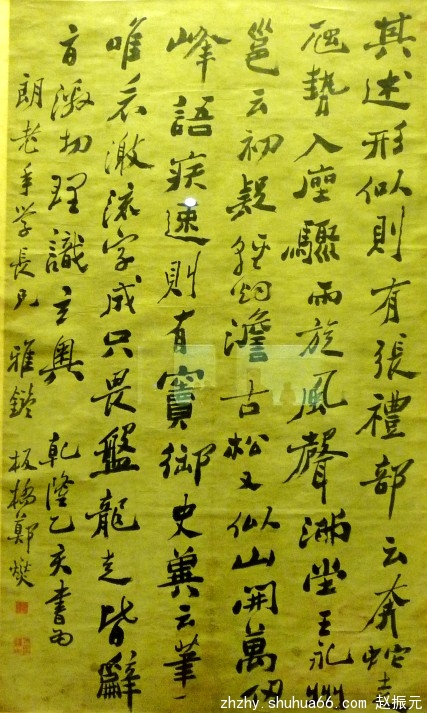 其述形似則有張禮部云奔蛇走
虺勢入座驟雨旋風聲滿坐王永州
邕云初疑輕烟澹古松又似山開萬仞
峰語疾速則有竇御史兾云筆
唯激流字成只畏盤龍走皆辭
言激切理識玄奧 乾隆乙亥書為
朗老年学長兄 雅鑒 板橋鄭燮
zhzhy.shuhua66.com 赵振元